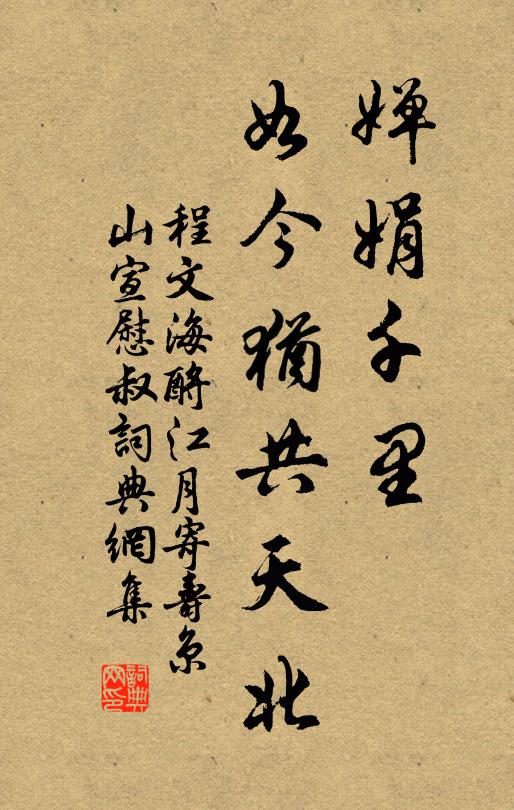 嬋娟千里
如今猶共天北
程文海酹江月寄壽京
山宣慰叔詞典網集
詞典网印